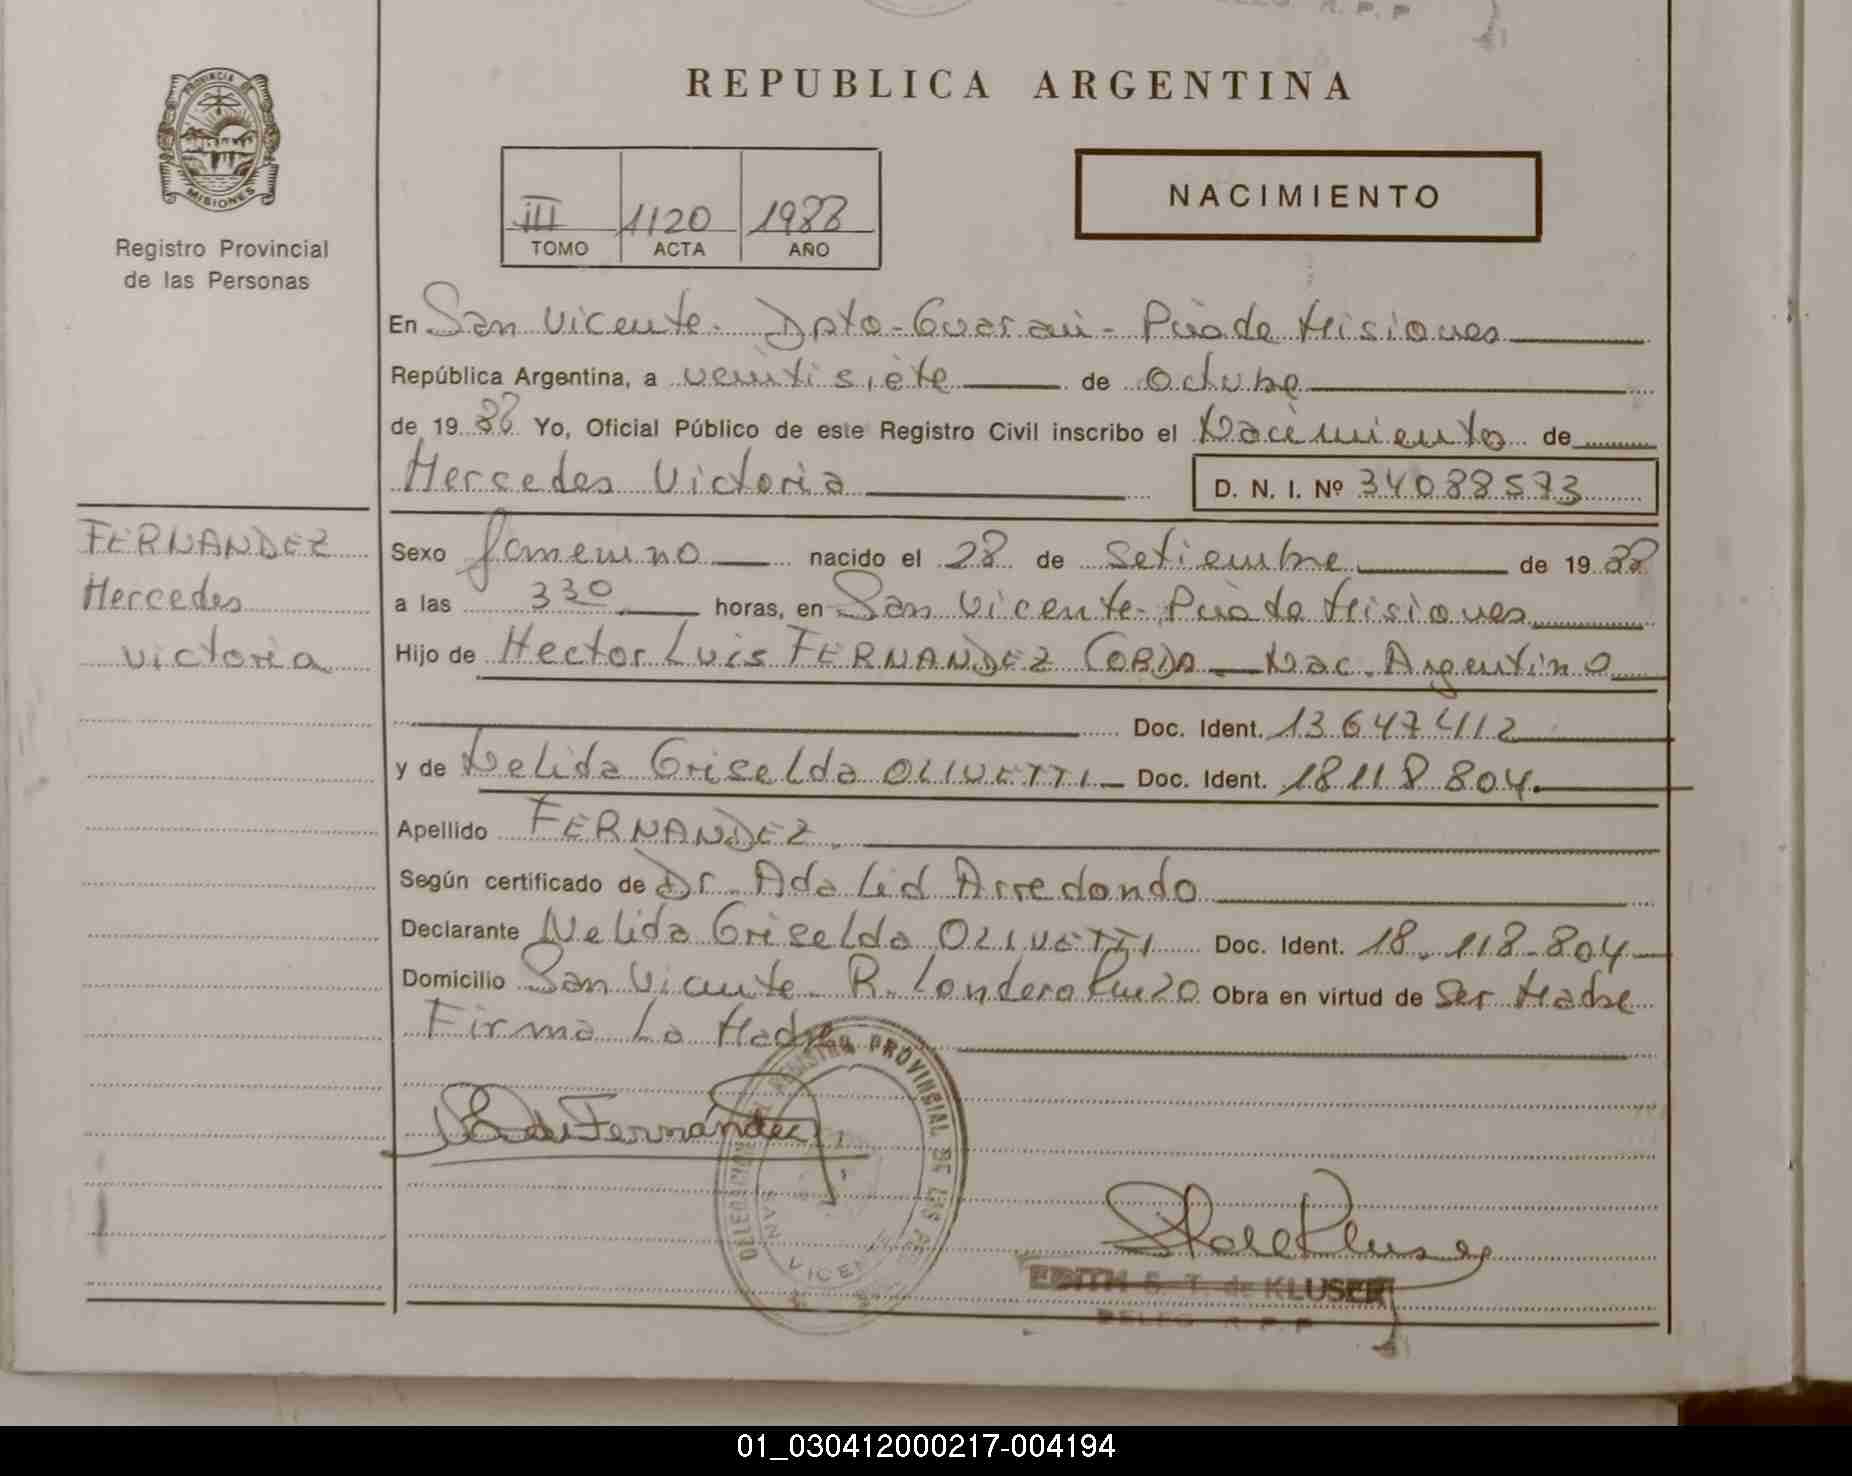 REPUBLICA ARGENTINA
PROVINCIA DE
MISIONES
Registro Provincial
de las Personas
III 1120 1988
TOMO ACTA AÑO
NACIMIENTO
En San Vicente - Dpto - Guarani - Pcia de Misiones
República Argentina, a veintisiete de Octubre
de 19 88 Yo, Oficial Público de este Registro Civil inscribo el Nacimiento de
Mercedes Victoria D. N. I. Nº 34088573
FERNANDEZ
Mercedes
Victoria
Sexo femenino nacido el 28 de Setiembre de 19 88
a las 330 horas, en San Vicente - Pcia de Misiones
Hijo de Hector Luis FERNANDEZ COBDA - Nac. Argentino
Doc. Ident. 13647412
y de Nelida Griselda OLIVETTI - Doc. Ident. 18118804.
Apellido FERNANDEZ.
Según certificado de Dr. Adalid Arredondo
Declarante Nelida Griselda OLIVETTI Doc. Ident. 18.118.804
Domicilio San Vicente - R. Londero Obra en virtud de Ser Madre
Firma La Madre
de Fernández
DELEGACION REGISTRO PROVINCIAL DE LAS
SAN VICENTE
EDITH S. T. de KLUSER
DELEG R. P. P
01_030412000217-004194